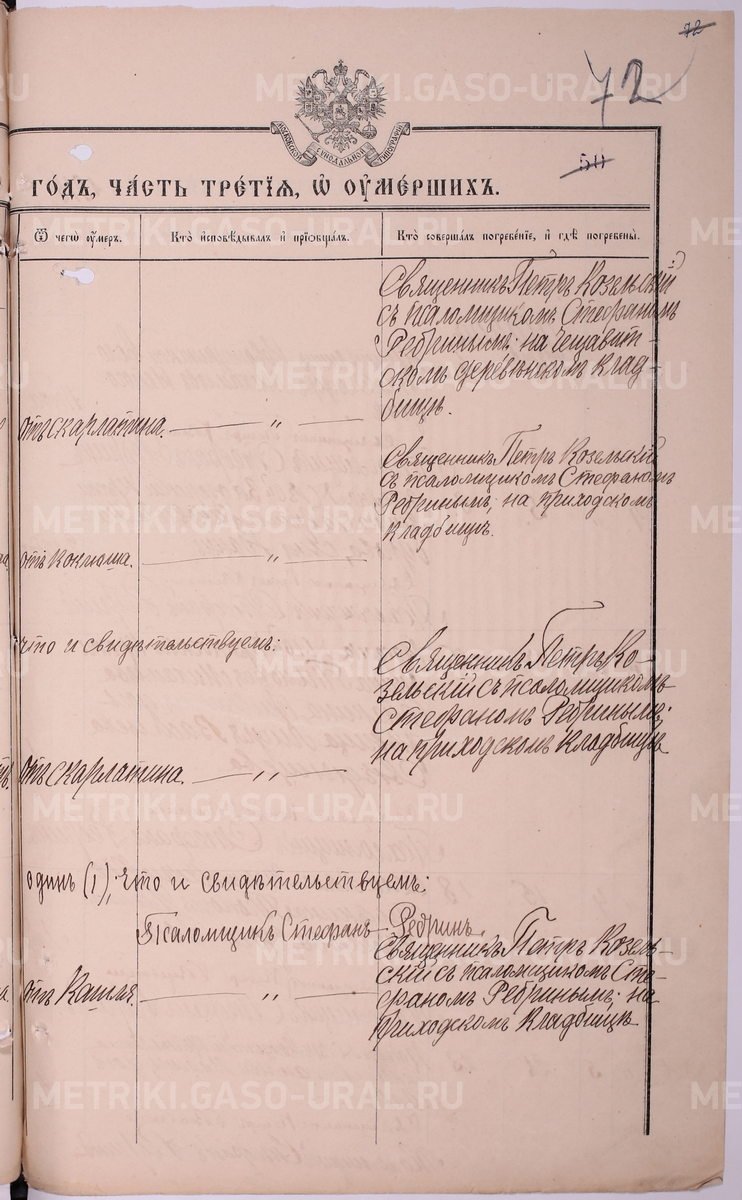 72
72
МОСКОВСКОЙ СѴНОДАЛЬНОЙ ТИПОГРАФІИ
50
ГОДЪ, ЧАСТЬ ТРЕТІЯ, Ѡ ОУМЕРШИХЪ.
Ѿ чегѡ оумеръ.
Кто исповѣдывалъ и пріобщалъ.
Кто совершалъ погребеніе, и гдѣ погребены.
Священникъ Петръ Козельскій
съ псаломщикомъ Стефаномъ
Ребринымъ; на
скомъ деревенскомъ клад-
бищѣ.
отъ скарлатина. — " —
Священникъ Петръ Козельскій
съ псаломщикомъ Стефаномъ
Ребринымъ, на приходскомъ
кладбищѣ.
отъ коклюша. — " —
что и свидѣтельствуемъ:
Священникъ Петръ Ко-
зельскій съ псаломщикомъ
Стефаномъ Ребринымъ;
на приходскомъ кладбищѣ
отъ скарлатина. — " —
одинъ (1), что и свидѣтельствуемъ:
Псаломщикъ Стефанъ Ребринъ.
Священникъ Петръ Козель-
скій съ псаломщикомъ Сте-
фаномъ Ребринымъ; на
приходскомъ кладбищѣ
отъ кашля. — " —
METRIKI.GASO-URAL.RU